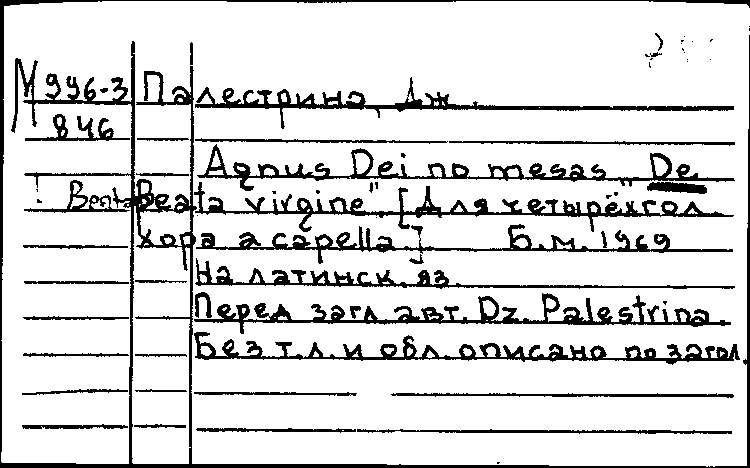 М 996-3 Палестрина, Дж.
846
Agnus Dei no mesas „De
! Beata Beata virgine". [Для четырёхгол.
хора a capella] Б.м. 1969
На латинск. яз.
Перед загл. авт. Dz. Palestrina.
Без т.л. и обл. описано по загол.